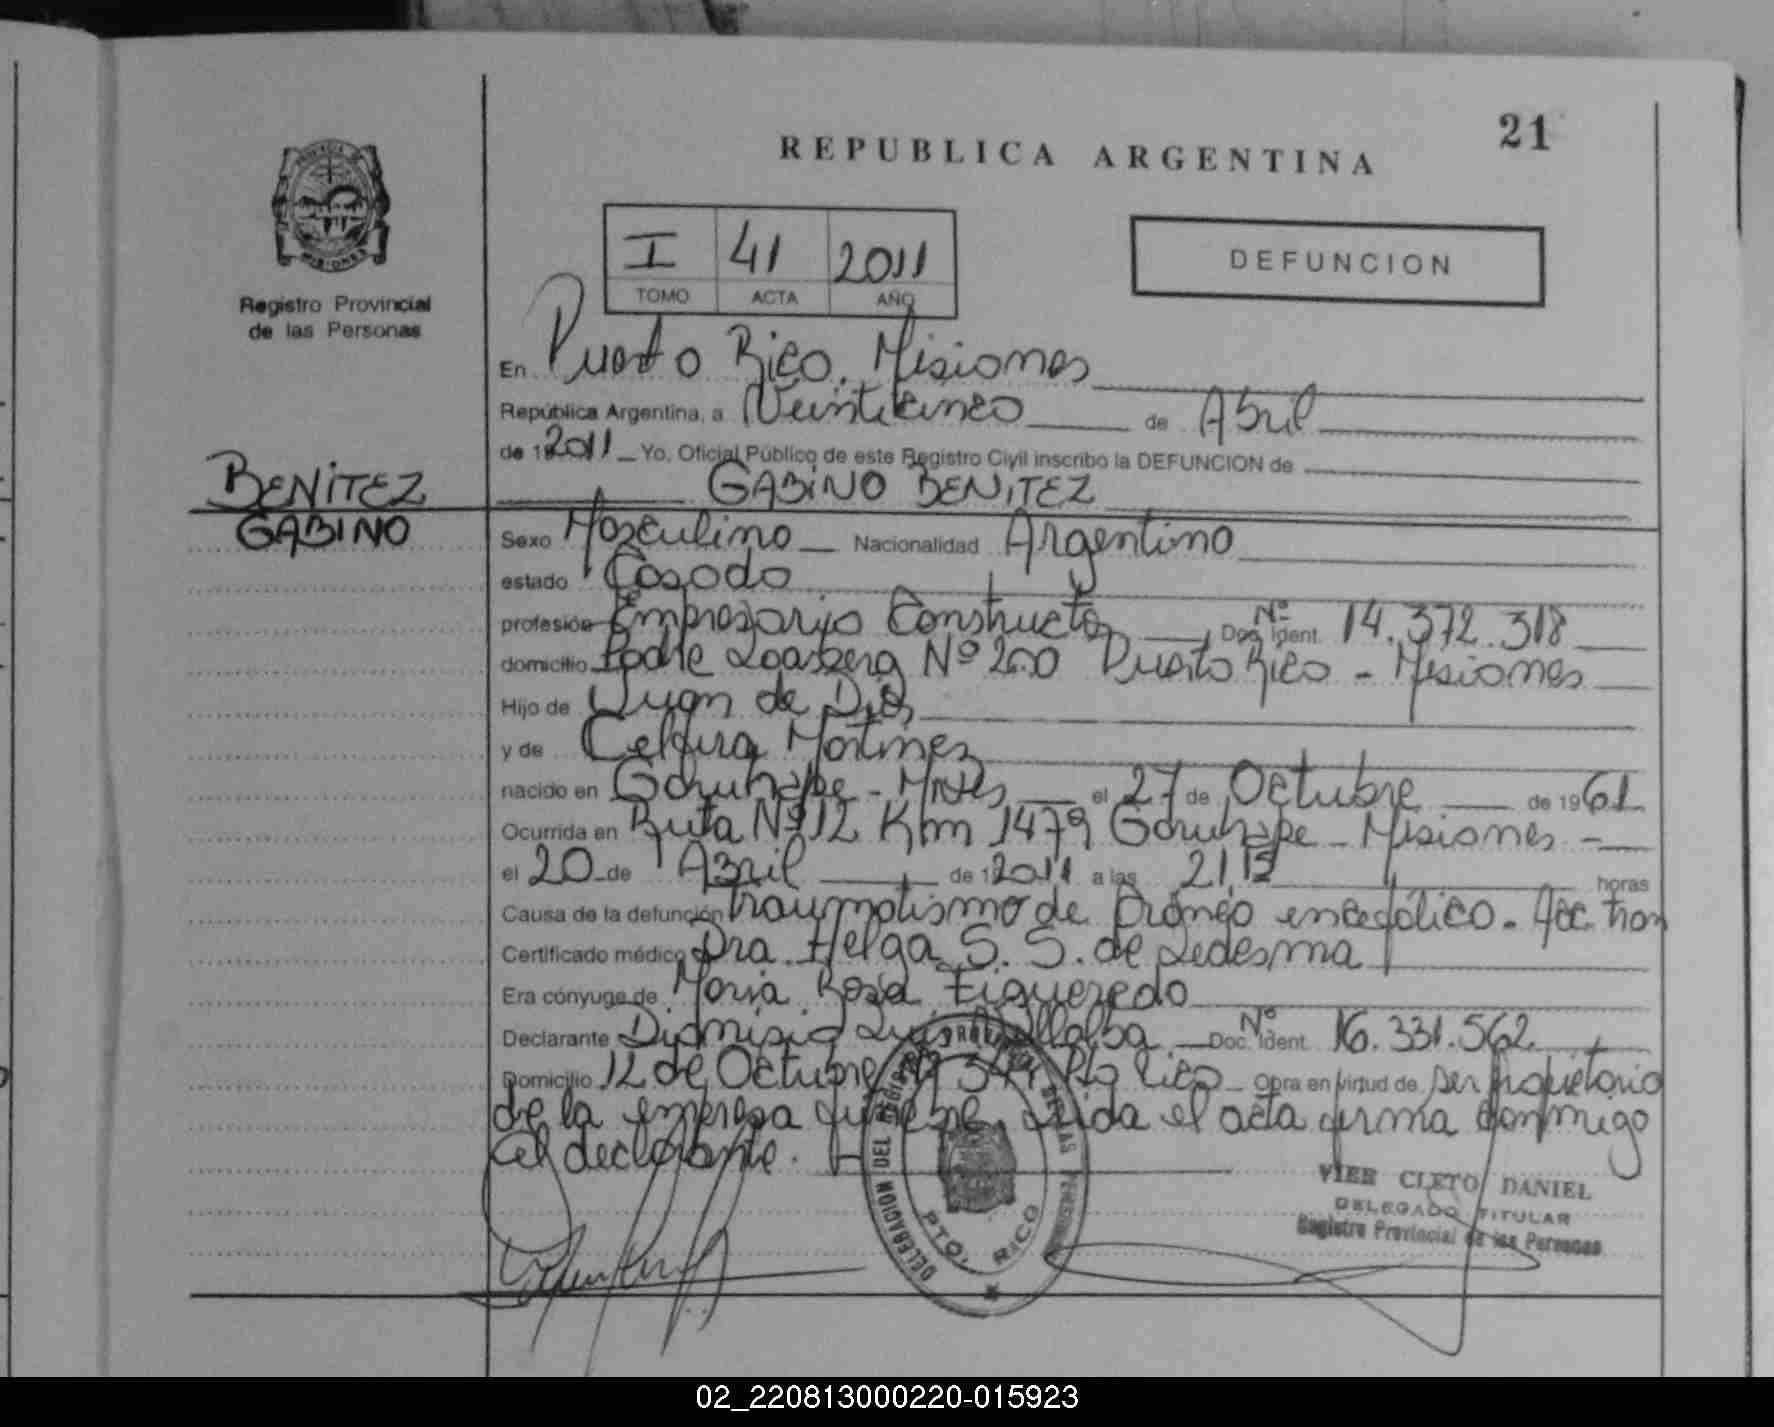 21
REPUBLICA ARGENTINA
PROVINCIA DE
MISIONES
Registro Provincial
de las Personas
I 41 2011
TOMO ACTA AÑO
DEFUNCION
En Puerto Rico. Misiones
República Argentina, a Veinticinco de Abril
de 19 2011 Yo, Oficial Público de este Registro Civil inscribo la DEFUNCION de
BENITEZ
GABINO
GABINO BENITEZ
Sexo Masculino Nacionalidad Argentino
estado Casado
profesión Empresario Constructor Doc. Ident. Nº 14.372.318
domicilio Padre Nº 200 Puerto Rico - Misiones
Hijo de Juan de Dios
y de Martinez
nacido en Garuhape - Mnes el 27 de Octubre de 1961
Ocurrida en Ruta Nº 12 Km 1479 Garuhape - Misiones -
el 20 de Abril de 2011 a las 21,15 horas
Causa de la defunción traumatismo de cráneo encefálico. Acc. tran
Certificado médico Dra. Helga S. S. de Ledesma
Era cónyuge de Maria Rosa Figueredo
Declarante Dionisio Luis Villalba Doc. Ident. Nº 16.331.562
Domicilio 12 de Octubre Nº Pto Rico Obra en virtud de ser propietario
de la empresa funebre. Leida el acta firma conmigo
el declarante.
DELEGACION DEL REGISTRO PROVINCIAL DE LAS PERSONAS
PTO. RICO
VIER CLETO DANIEL
DELEGADO TITULAR
Registro Provincial de las Personas
02_220813000220-015923